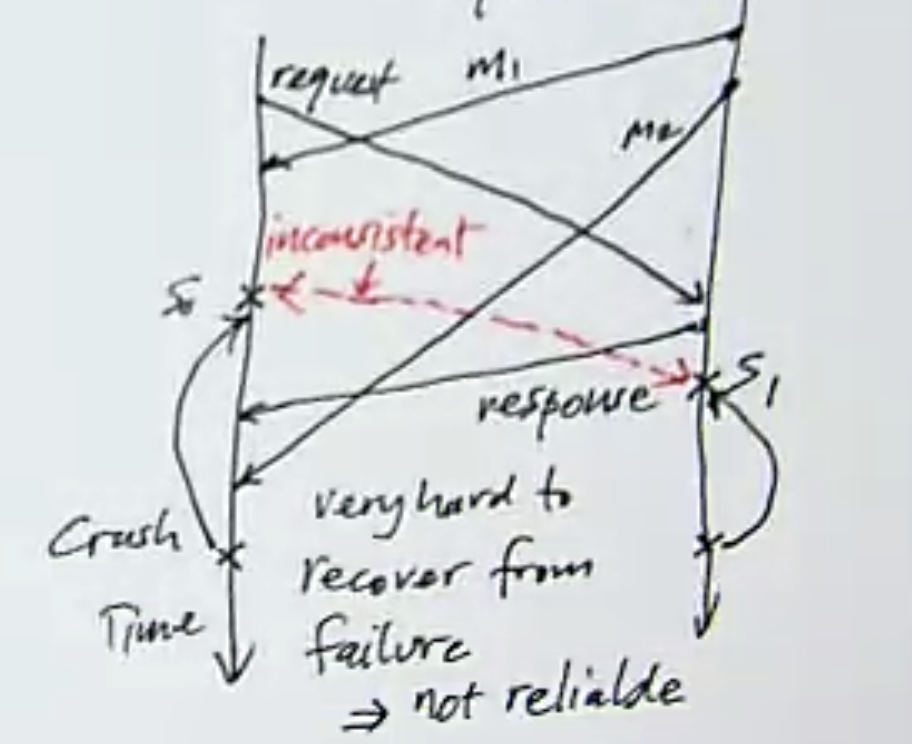 request
m1
m2
inconsistent
S0
S1
response
Crash
Time
very hard to
recover from
failure
⇒ not relialde